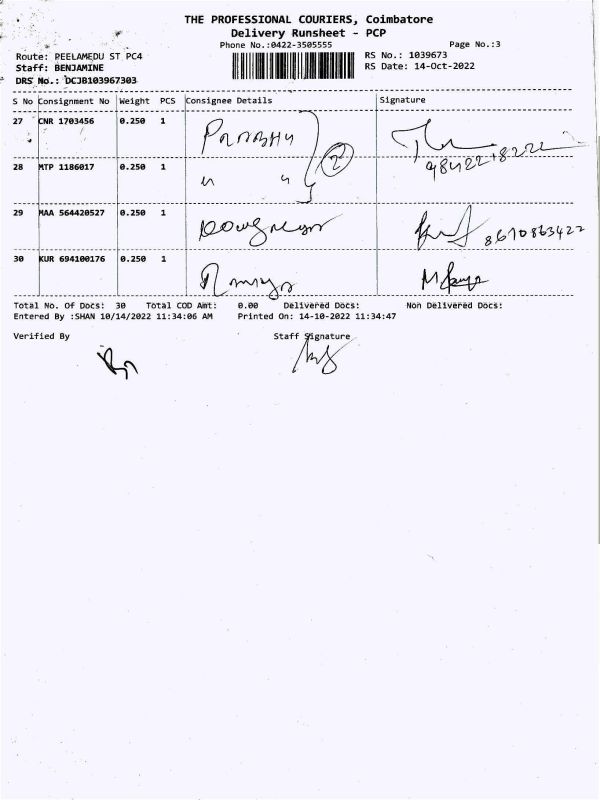 THE PROFESSIONAL COURIERS, Coimbatore
Delivery Runsheet - PCP
Phone No.:0422-3505555 Page No.:3
Route: PEELAMEDU ST PC4 RS No.: 1039673
Staff: BENJAMINE RS Date: 14-Oct-2022
DRS No.: DCJB103967303
S No Consignment No Weight PCS Consignee Details Signature
27 CNR 1703456 0.250 1 PRABHU
2
28 MTP 1186017 0.250 1 " "
29 MAA 564420527 0.250 1 8610863422
30 KUR 694100176 0.250 1 Ramya
Total No. Of Docs: 30 Total COD Amt: 0.00 Delivered Docs: Non Delivered Docs:
Entered By :SHAN 10/14/2022 11:34:06 AM Printed On: 14-10-2022 11:34:47
Verified By Staff Signature